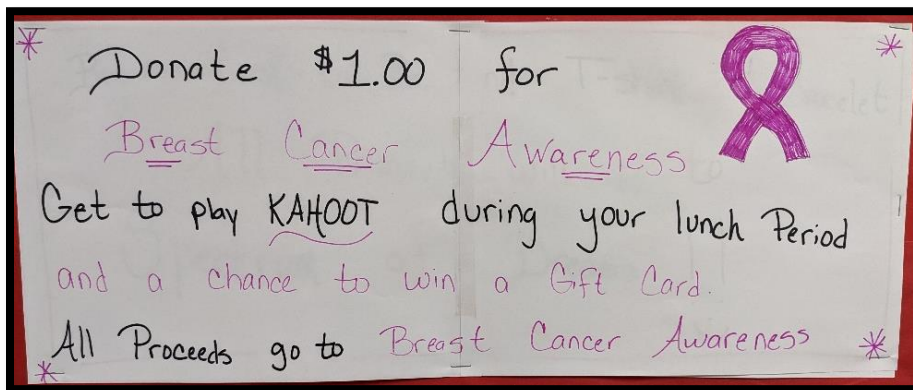 Donate $1.00 for
Breast Cancer Awareness
Get to play KAHOOT during your lunch Period
and a chance to win a Gift Card.
All Proceeds go to Breast Cancer Awareness